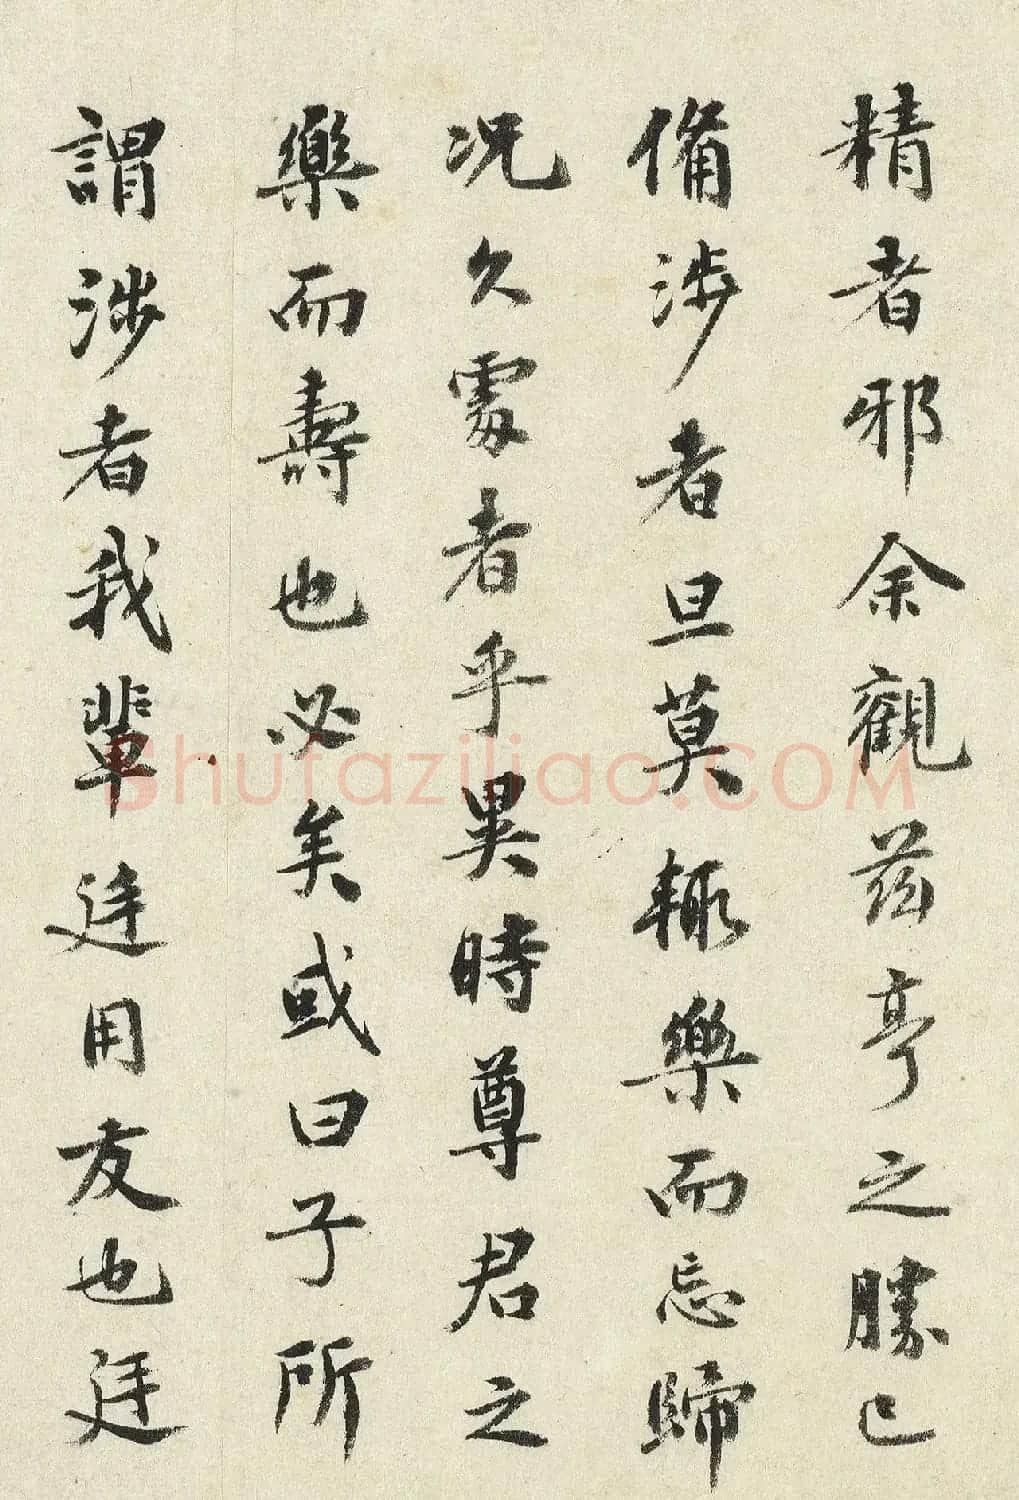 精者邪余觀茲亭之勝已
備涉者旦莫輒樂而忘歸
況久處者乎異時尊君之
樂而壽也必矣或曰子所
謂涉者我輩廷用友也廷
Shufaziliao.COM